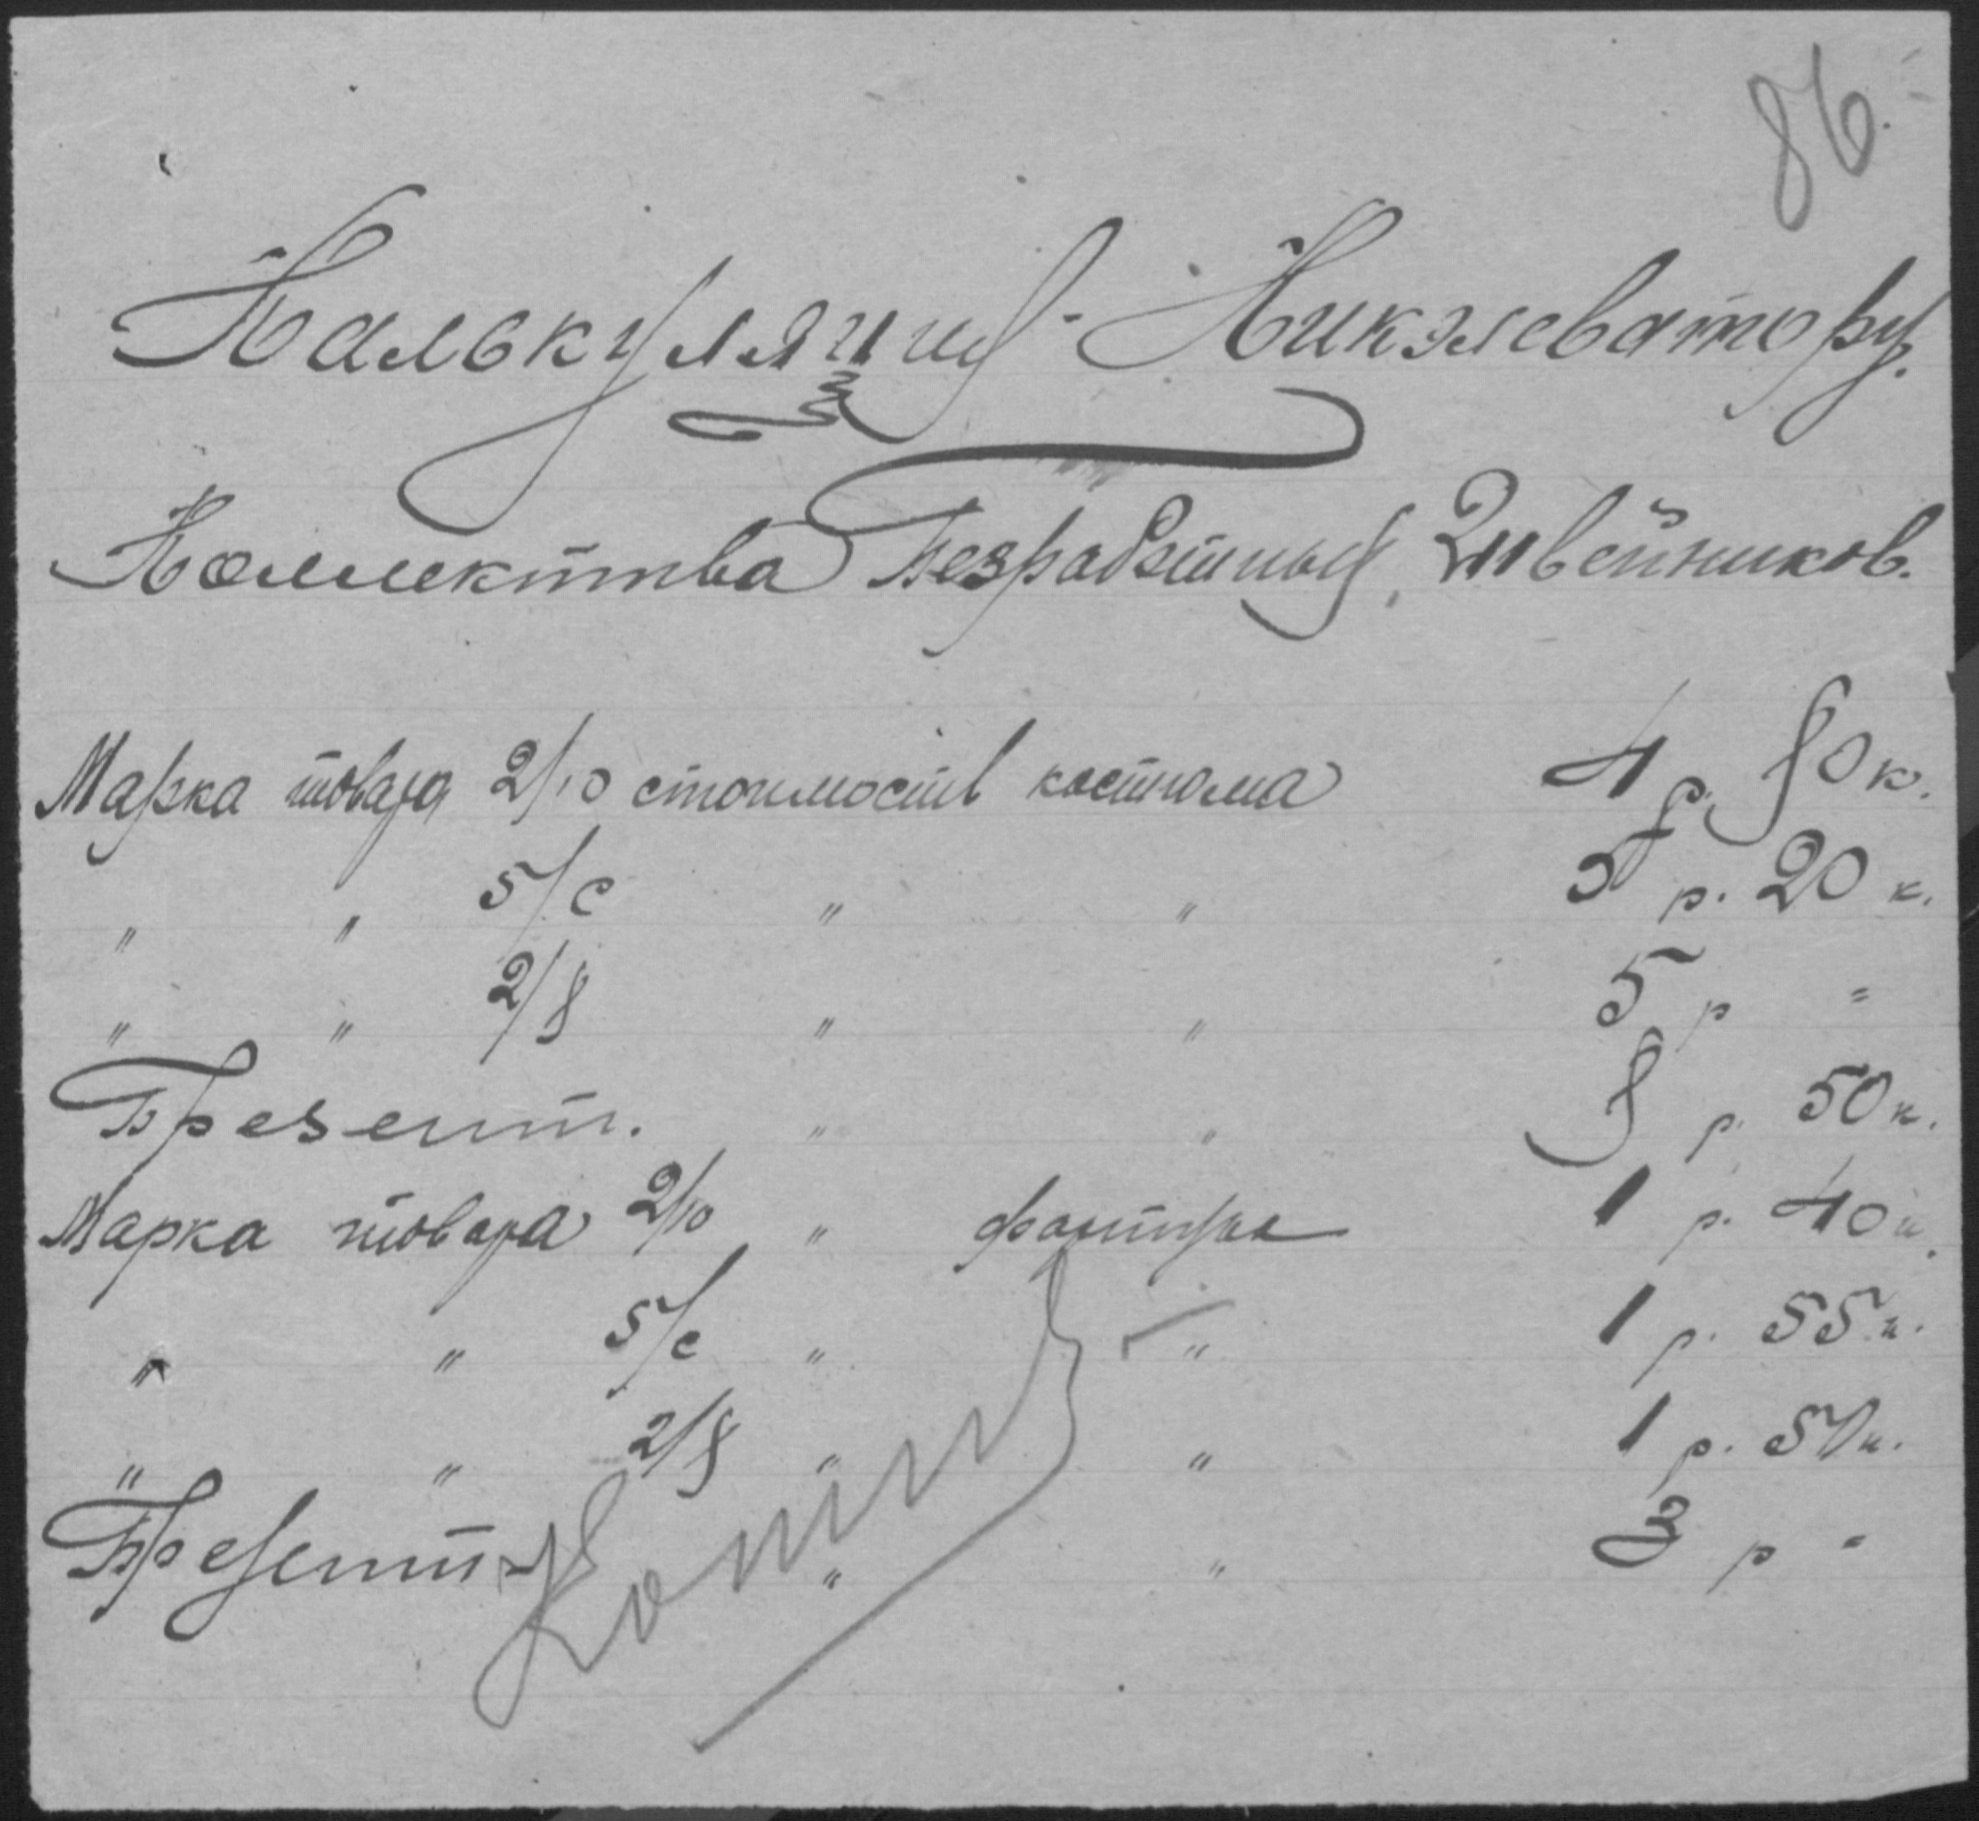 86.
Калькуляция Никэлеватору.
Коллектива Безработных Швейников.
Марка товара 2/10 стоимость костюма 4 р. 80 к.
" " 5/с " " 5 р. 20 к.
" " 2/8 " " 5 р "
Брезент. " " 8 р. 50 к.
Марка товара 2/10 " фартука 1 р. 40 к.
" " 5/с " " 1 р. 55 к.
" " 2/8 " " 1 р. 50 к.
Брезент " " 3 р "